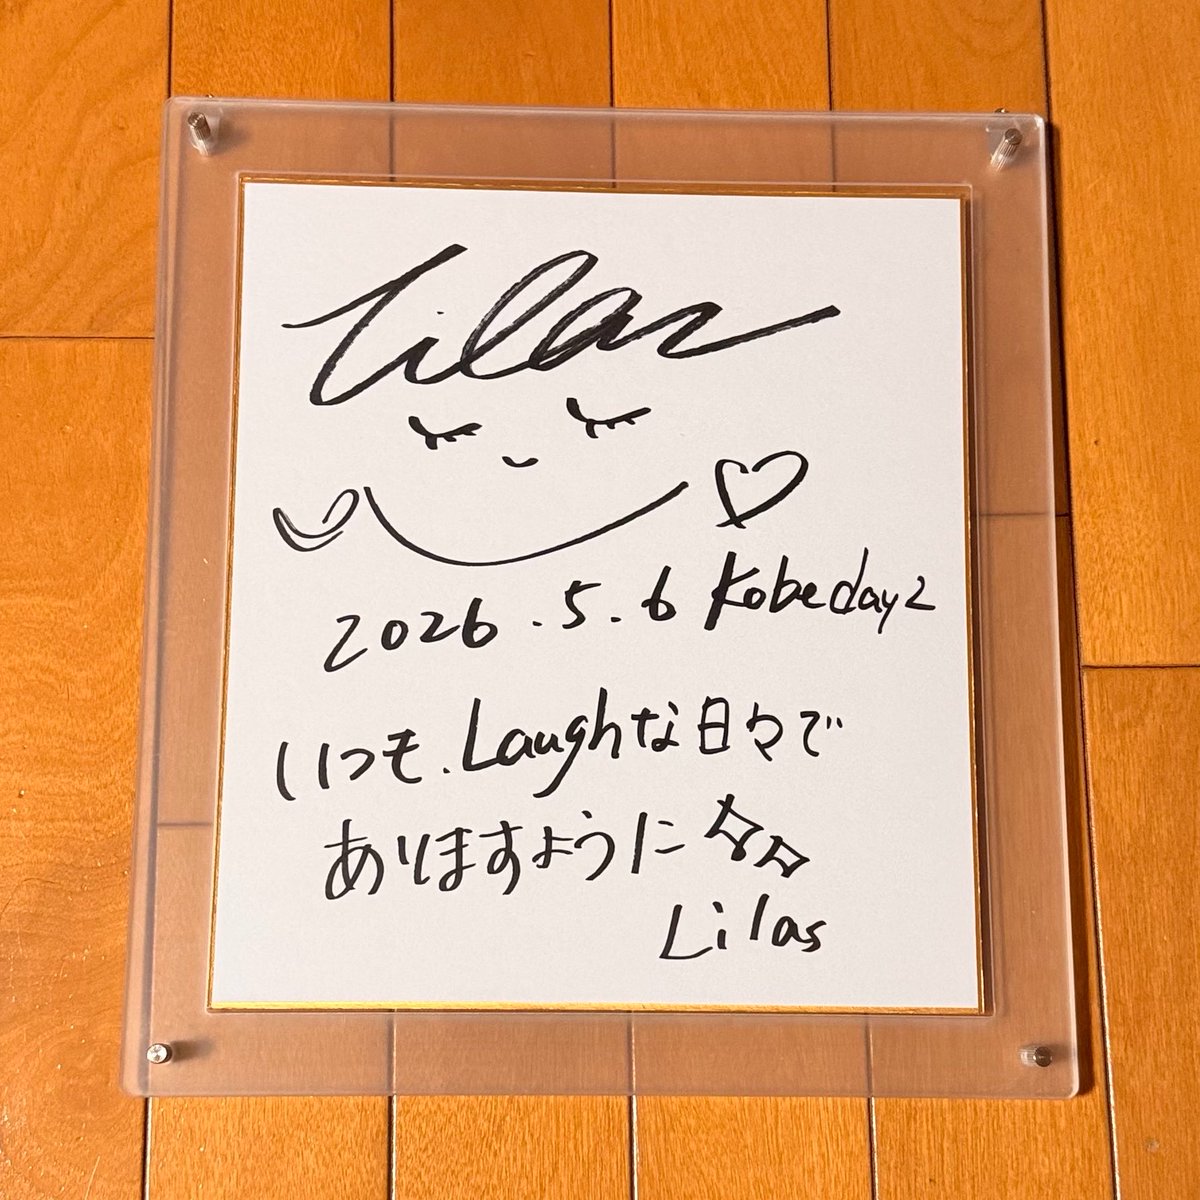 Lilas
2026.5.6 Kobe day2
いつも、Laughな日々で
ありますように
Lilas